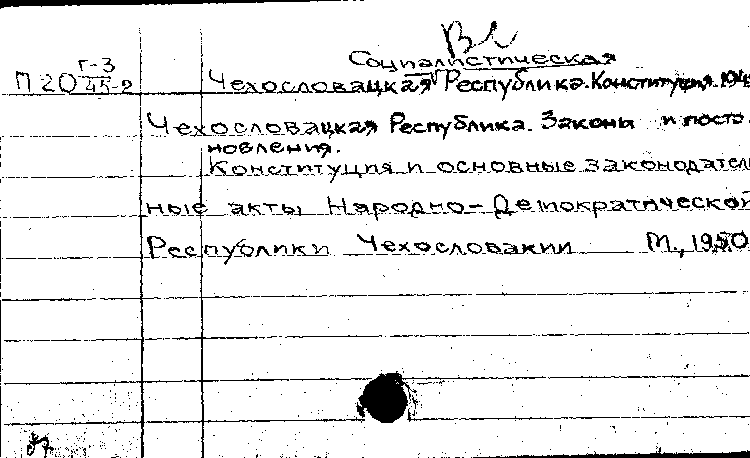 Социалистическая
П 20 Г-3/45-2 Чехословацкая Республика. Конституция. 194
Чехословацкая Республика. Законы и поста
новления.
Конституция и основные законодатель
ные акты Народно-Демократической
Республики Чехословакии М., 1950